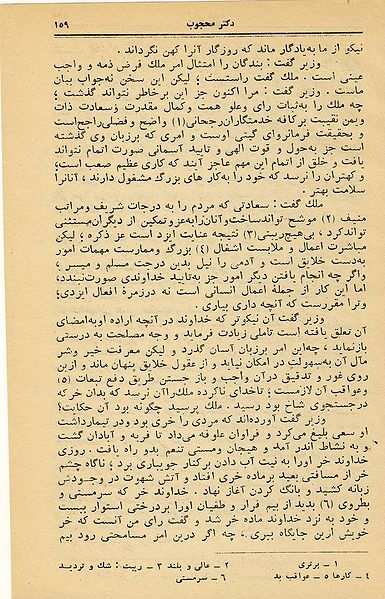 ۱۵۹
دکتر محجوب
نیکو از ما به‌یادگار ماند که روزگار آنرا کهن نگرداند .
وزیر گفت : بندگان را امتثال امر ملك فرض ذمه و واجب
عینی است . ملك گفت راستست ؛ لیکن این سخن نه‌جواب بیان
ماست . وزیر گفت : مرا اکنون جز این برخاطر نتواند گذشت ؛
چه ملك را به‌ثبات رای وعلو همت وکمال مقدرت وسعادت ذات
ویمن نقیبت برکافه خدمتگاران‌رجحانی(۱) واضح و فضلی‌راجح‌است
و بحقیقت فرمانروای گیتی اوست و امری که برزبان وی گذشته
است جز به‌حول و قوت الهی و تایید آسمانی صورت اتمام نتواند
یافت و خلق از اتمام این مهم عاجز آیند که کاری عظیم صعب‌است؛
و کهتران را نرسد که خود را به‌کار های بزرگ مشغول دارند ، آنانرا
سلامت بهتر .
ملك گفت : سعادتی که مردم را به درجات شریف ومراتب
منیف (۲) موشح تواندساخت‌وآنان‌رابه‌عز وتمکین از دیگران‌مستثنی
تواندکرد ، بی‌هیچ‌ریبتی(۳) نتیجه عنایت ایزد است عز ذکره ؛ لیکن
مباشرت اعمال و ملابست اشغال (٤) بزرگ وممارست مهمات امور
به‌دست خلایق است و آدمی را نیل بدین درجت مسلم و میسر ،
واگر چه انجام یافتن دیگر امور جز به‌تایید خداوندی صورت‌نبندد،
اما این کار از جملهٔ اعمال انسانی است نه درزمرهٔ افعال ایزدی؛
وترا مقررست که آنچه داری بیاری .
وزیر گفت آن نیکوتر که خداوند در آنچه اراده اوبه‌امضای
آن تعلق یافته است تاملی زیادت فرماید و وجه مصلحت به درستی
بازنماید ، چه‌این امر برزبان آسان گذرد و لیکن معرفت خیر وشر
مآل آن به‌سهولت در امکان نیاید و از عقول خلایق پنهان ماند و ازین
روی غور و تدقیق درآن واجب و باز جستن طریق دفع تبعات (٥)
وعواقب آن لازمست ؛ تاخدای ناکرده ملك‌راآن نرسد که بدان خر‌که
درجستجوی شاخ بود رسید . ملك پرسید چگونه بود آن حکایت؟
وزیر گفت آورده‌اند که مردی را خری بود ودر تیمارداشت
او سعی بلیغ می‌کرد و فراوان علوفه می‌داد تا فربه و آبادان گشت
و به نشاط اندر آمد و هیجان ومستی تنعم بدو راه یافت . روزی
خداوند خر اورا به نیت آب دادن برکنار جویباری برد ؛ ناگاه چشم
خر از مسافتی بعید برماده خری افتاد و آتش شهوت در وجودش
زبانه کشید و بانگ کردن آغاز نهاد . خداوند خر که سرمستی و
بطروی (٦) بدید از بیم فرار و طغیان اورا بردرختی استوار ببست
و خود به نزد خداوند ماده خر شد و گفت رای من آنست که خر
خویش ازین جایگاه ببری ، چه اگر درین امر مسامحتی رود بیم
۱ - برتری
۲ - عالی و بلند
۳ - ریبت : شك و تردید
٤ - کارها
٥ - عواقب بد
٦ - سرمستی